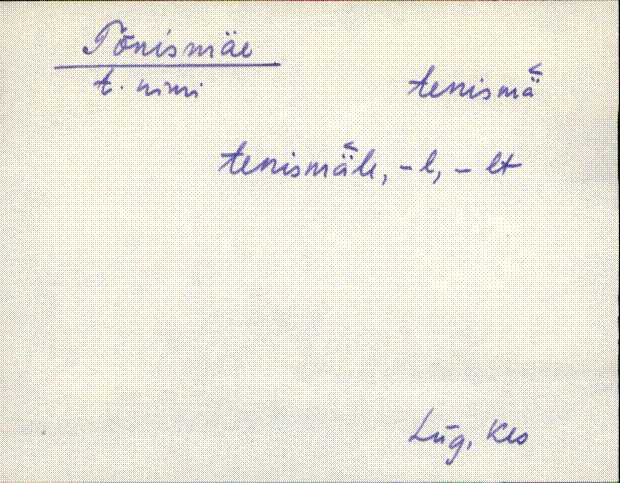 Tõnismäe
t. nimi
tenismä̆
tenismä̆le, -l, -lt
Lüg, Kes